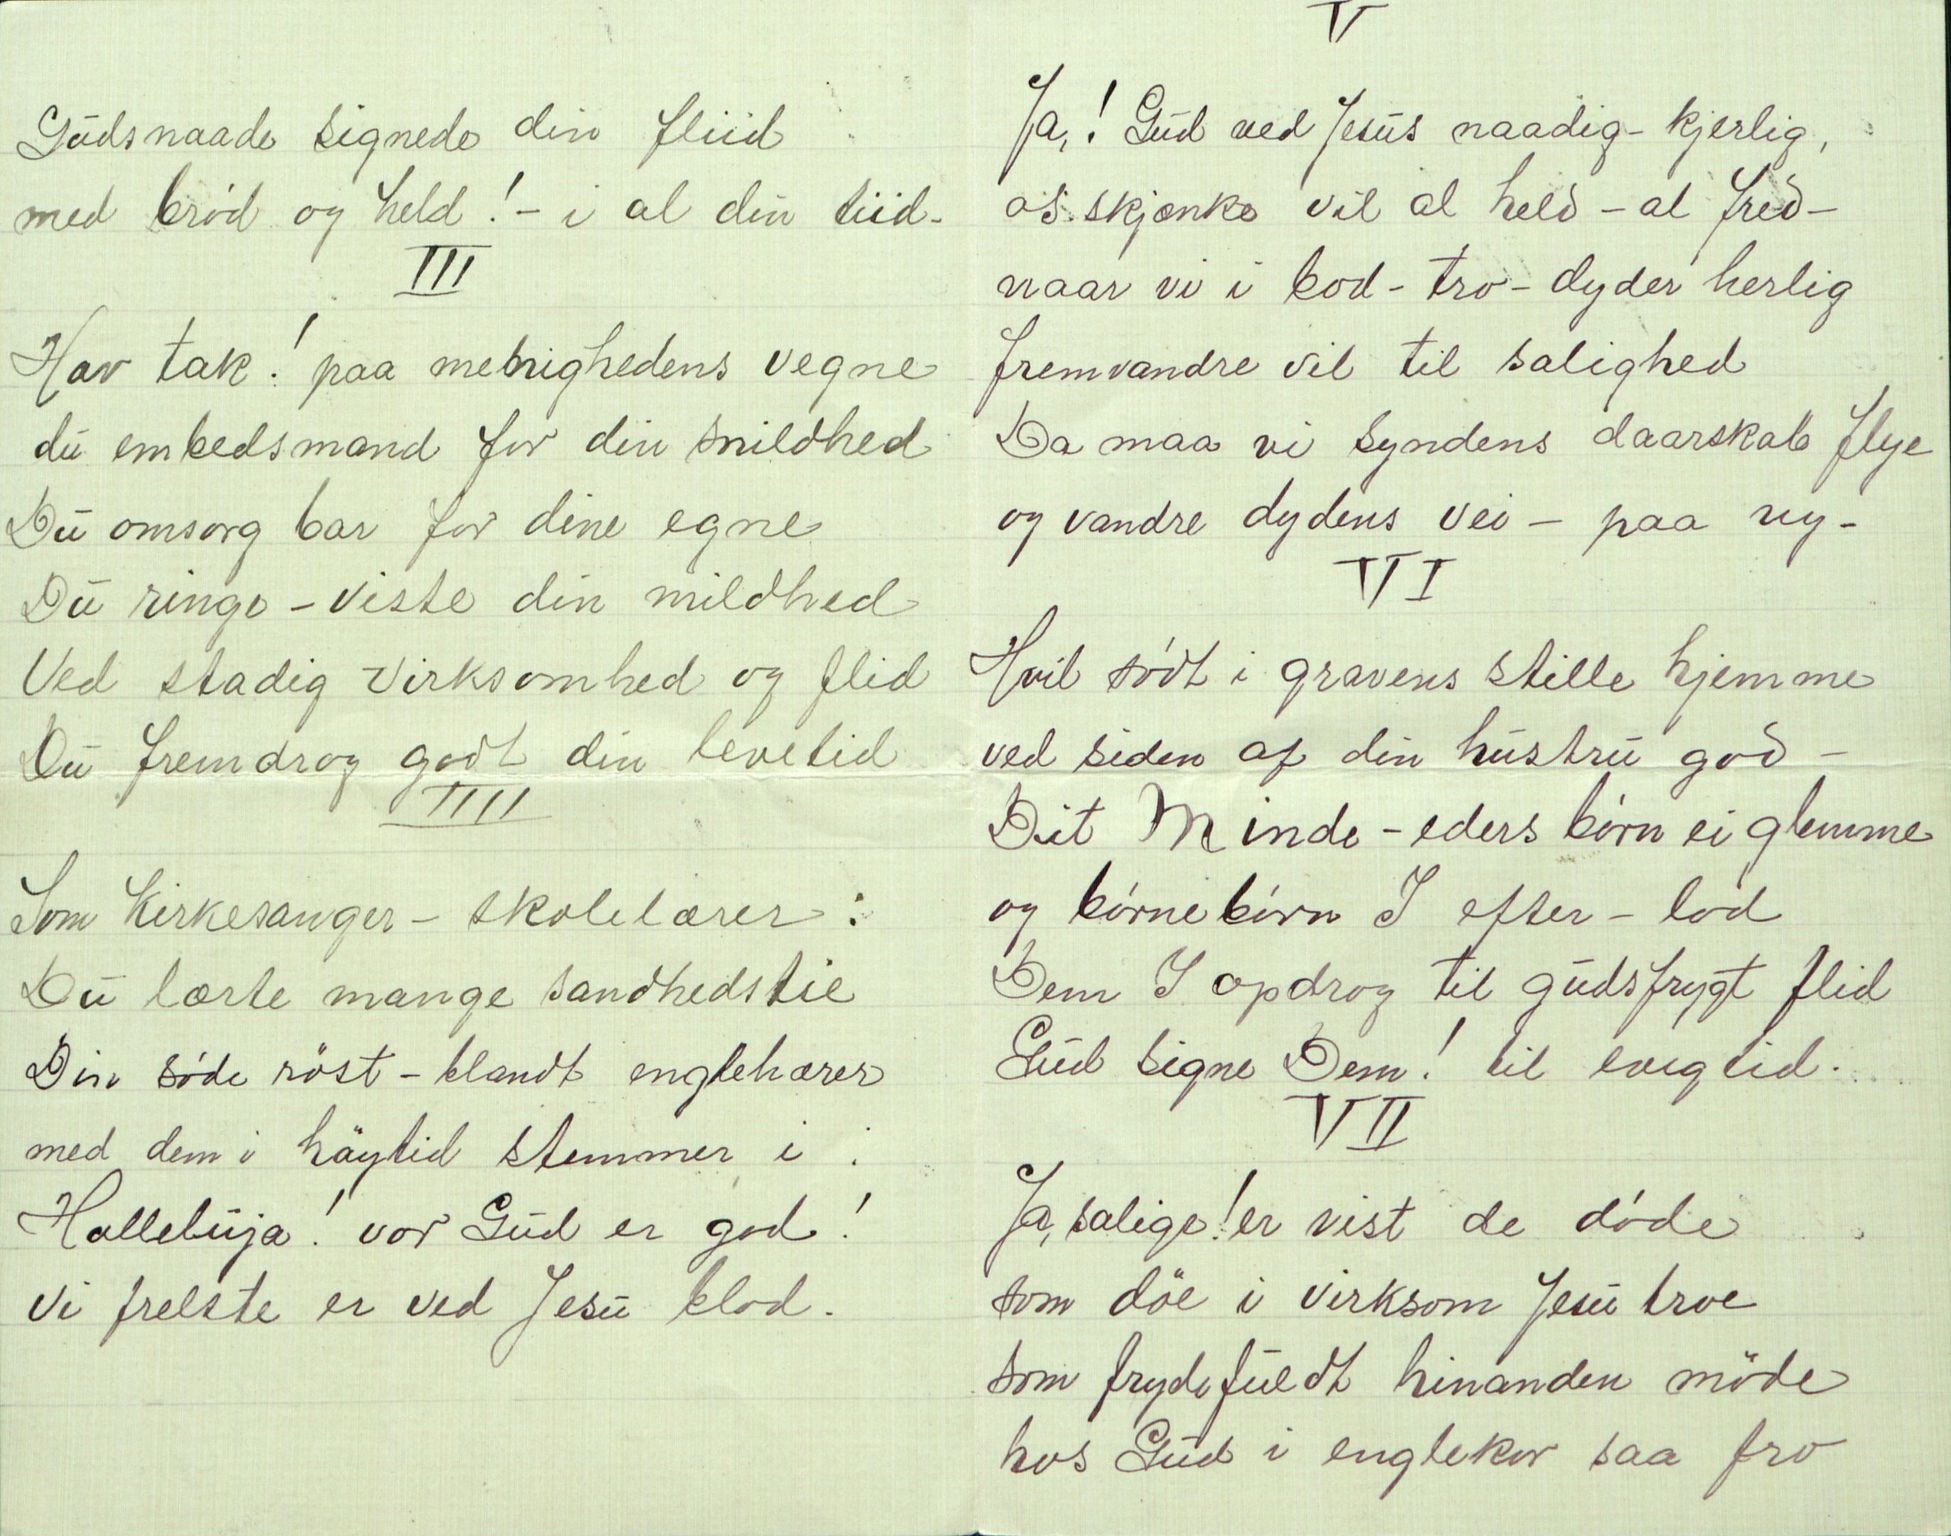 Gudsnaade signede din fliid
med bród og held! - i al din tiid -
III
Hav tak! paa menighedens vegne
du embedsmand for din snildhed
Du omsorg bar for dine egne
Du ringe - viste din mildhed
Ved stadig virksomhed og flid
Du fremdrog godt din levetid
IIII
Som Kirkesanger - skolelærer :
Du lærte mange sandhedstie
Din sóde röst - blandt englehærer
med dem i häytid stemmer i :
Halleluja! vor Gud er god!
vi frelste er ved Jesu blod.
V
Ja,! Gud ved Jesus naadig - kjerlig,
os skjænke vil al held - al fred -
naar vi i bod - tro - dyder herlig
fremvandre vil til salighed
Da maa vi syndens daarskab flye
og vandre dydens vei - paa ny -
VI
Hvil södt i gravens stille hjemme
ved siden af din hustru god -
Dit Minde - eders börn ei glemme
og börnebörn I efter - lod
Dem I opdrog til gudsfrygt flid
Gud signe Dem! til evigtid.
VII
Ja, salige! er vist de döde
som döe i virksom Jesu troe
som frydefuldt hinanden möde
hos Gud i englekor saa fro